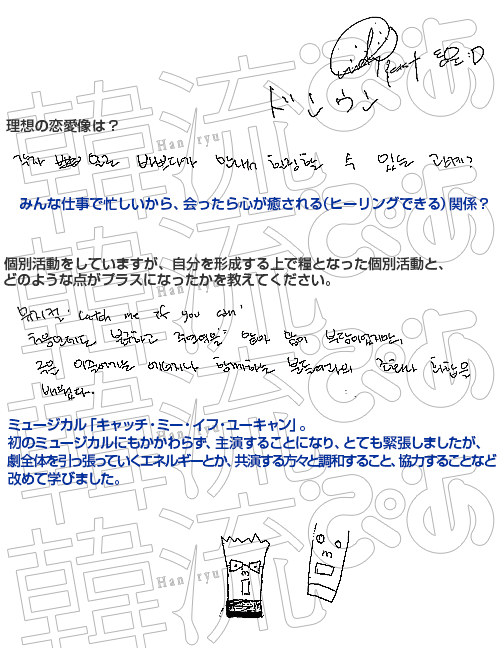 ドンウン
理想の恋愛像は？
각자 바쁜 일로 바쁘다가 만나서 힐링할 수 있는 관계?
みんな仕事で忙しいから、会ったら心が癒される(ヒーリングできる)関係？
個別活動をしていますが、自分を形成する上で糧となった個別活動と、
どのような点がプラスになったかを教えてください。
뮤지컬 'catch me if you can'
처음인데도 불구하고 주연역을 맡아 많이 부담이었지만,
극을 이끌어가는 에너지나 함께하는 분들이랑의 조화나 화합을
배웠다.
ミュージカル「キャッチ・ミー・イフ・ユーキャン」。
初のミュージカルにもかかわらず、主演することになり、とても緊張しましたが、
劇全体を引っ張っていくエネルギーとか、共演する方々と調和すること、協力することなど
改めて学びました。
韓流ぴあ
Han ryu
韓流ぴあ
韓流ぴあ
Han ryu